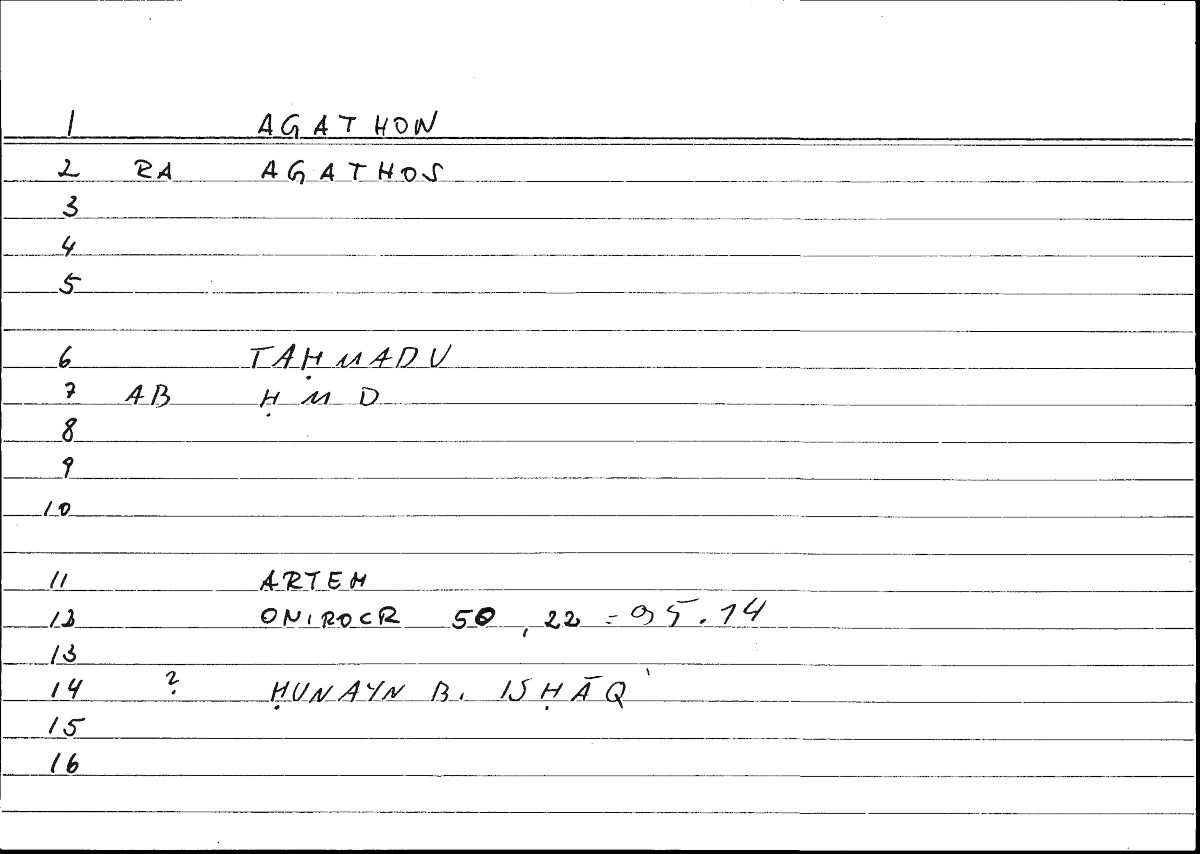 1 AGATHON
2 RA AGATHOS
3
4
5
6 TAḤMADU
7 AB ḤMD
8
9
10
11 ARTEM
12 ONIROCR 50,22 = 95.14
13
14 ? ḤUNAYN B. ISḤĀQ
15
16